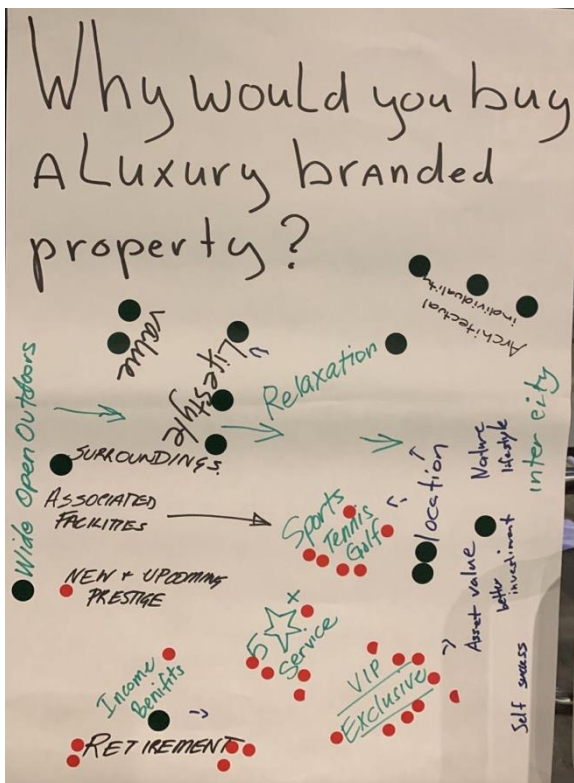 Why would you buy
A Luxury branded
property?
Architectual
individuality
Value
Lifestyle
Relaxation
Wide Open Outdoors
SURROUNDINGS.
ASSOCIATED
FACILITIES
Sports
Tennis
Golf
location
Nature
lifestyle
inter city
NEW + UPCOMING
PRESTIGE
5 x
Service
Asset value
better
investiment
Self success
VIP
Exclusive
Income
Benifits
RETIREMENT